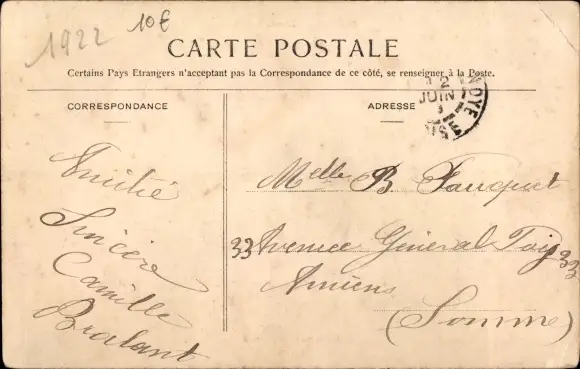 1922
10€
CARTE POSTALE
Certains Pays Etrangers n'acceptant pas la Correspondance de ce côté, se renseigner à la Poste.
CORRESPONDANCE
ADRESSE
JUIN
Amitié
Sincère
Camille
Brabant
Melle B Fauquet
33 Avenue Général Foy 33
Amiens
(Somme)